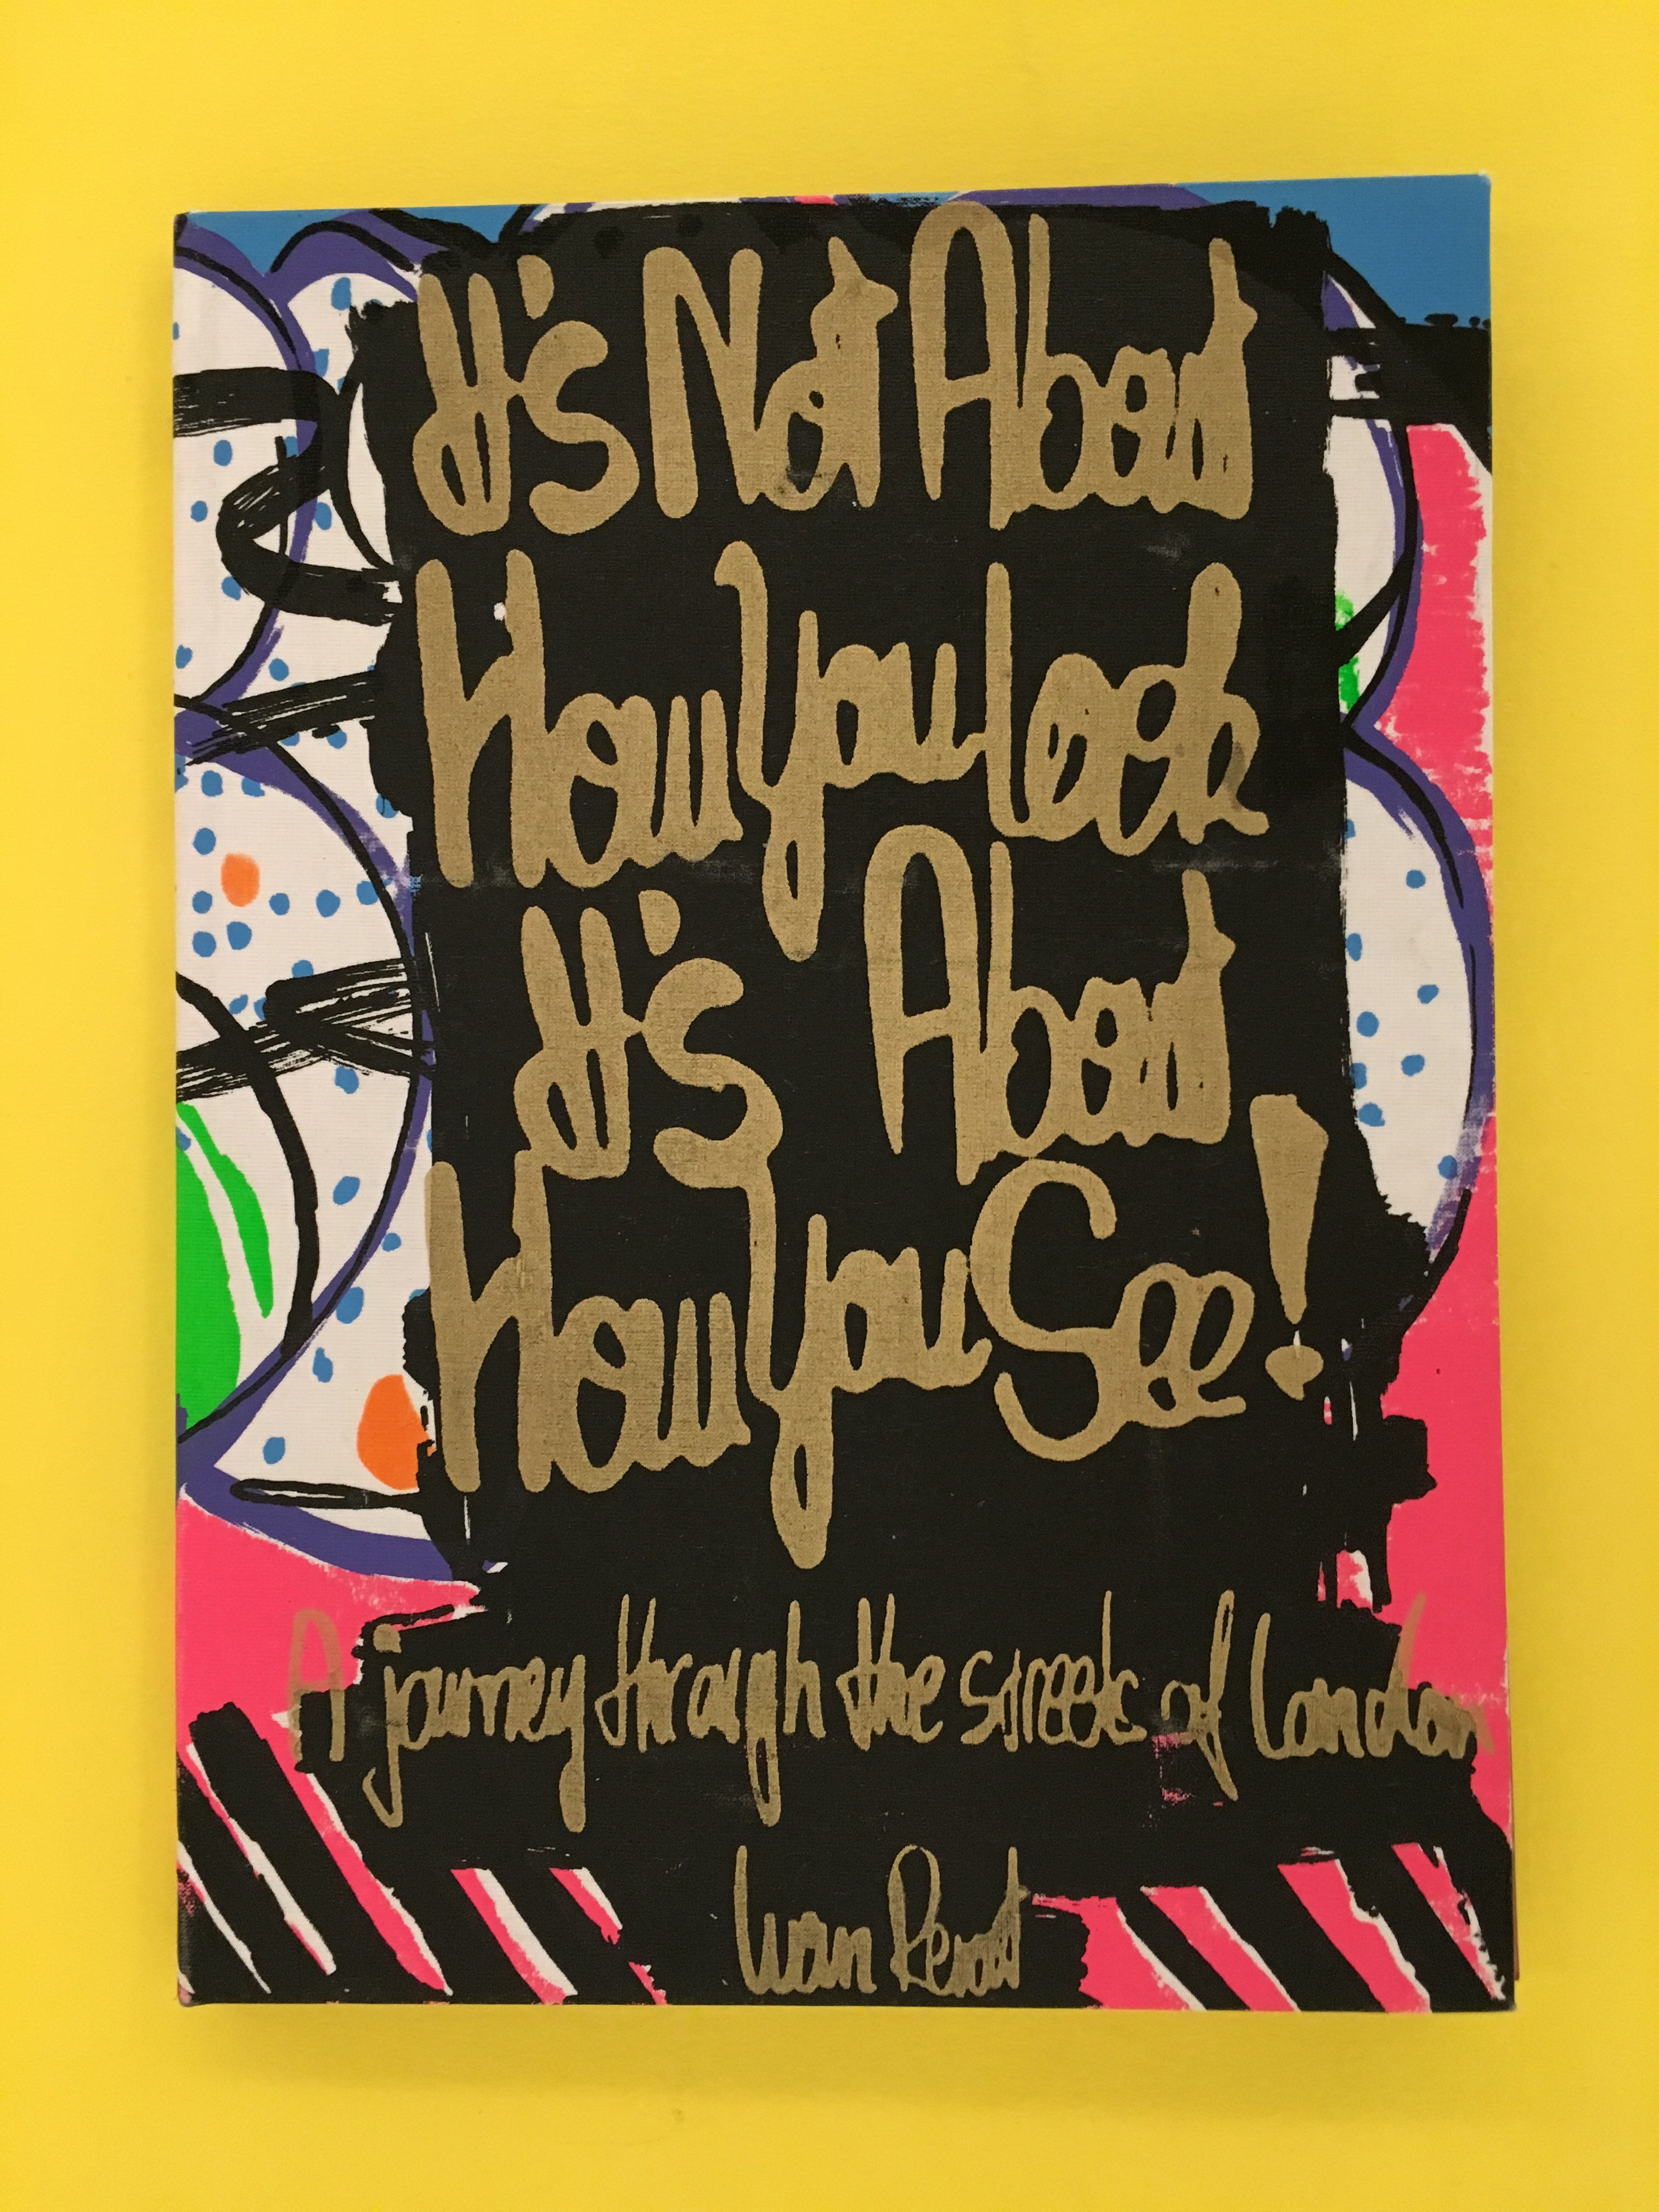 It's Not About
How You look
It's About
How You See!
A journey through the streets of London
Ivan Riches